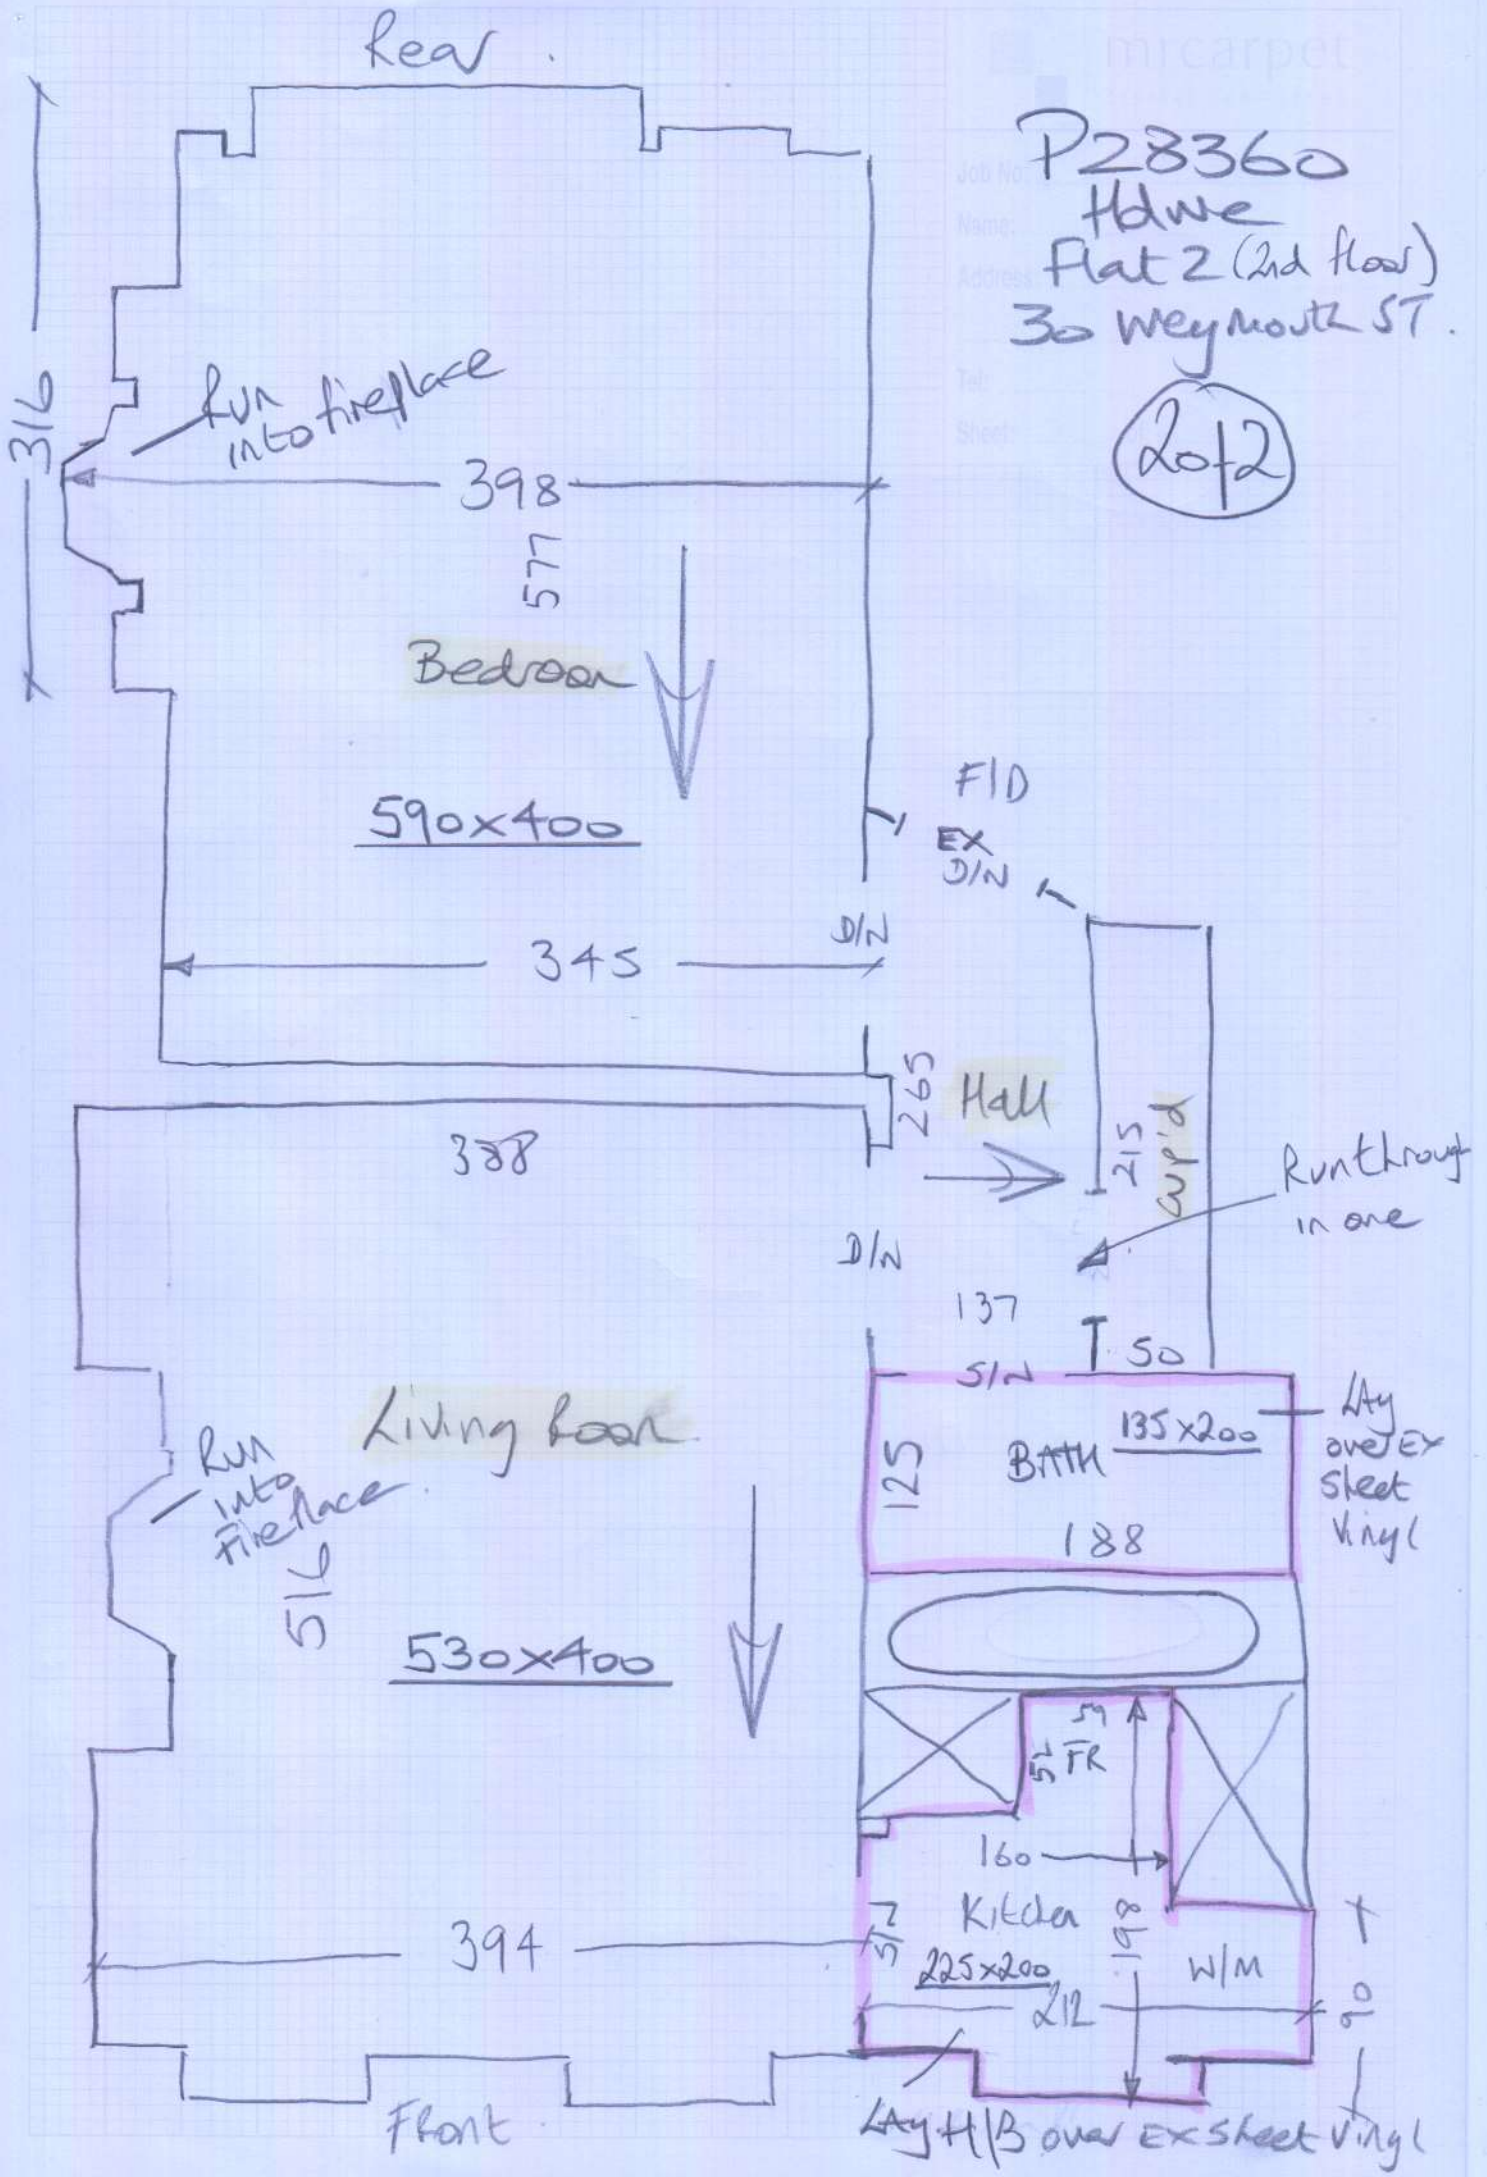 Rear
mrcarpet
Job No:
P28360
Name:
Address:
Flat 2 (2nd floor)
30 Weymouth ST.
Tel:
Sheet:
2 of 2
316
Run
into fireplace
398
577
Bedroom
590x400
F/D
EX
D/N
D/N
345
265
Hall
215
Cup'd
Run through
in one
388
D/N
137
50
S/N
Living Room
Run
into
Fireplace
516
530x400
125
BATH
135x200
188
Lay
over EX
Sheet
Vinyl
53
52
FR
160
Kitchen
198
S/N
225x200
W/M
394
212
90
Front
Lay H/B over EX Sheet Vinyl